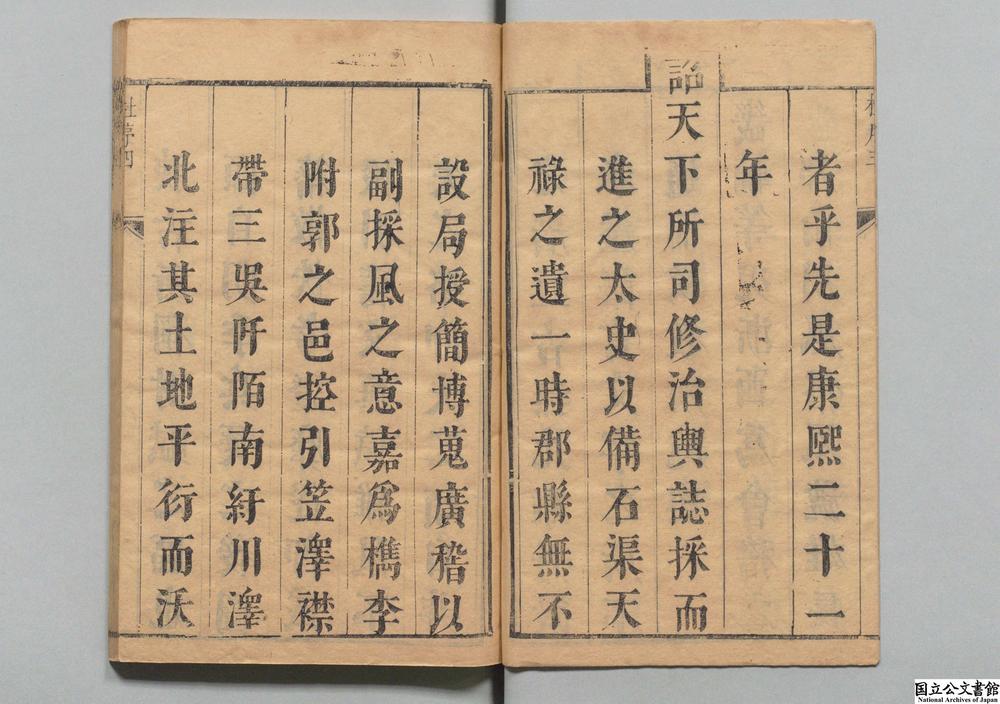 者乎先是康熙二十一
年
詔天下所司修治輿誌採而
進之太史以備石渠天
祿之遺一時郡縣無不
設局授簡博蒐廣稽以
副採風之意嘉為檇李
附郭之邑控引笠澤襟
帶三吳阡陌南紆川澤
北注其土地平衍而沃
杜序四
国立公文書館
National Archives of Japan